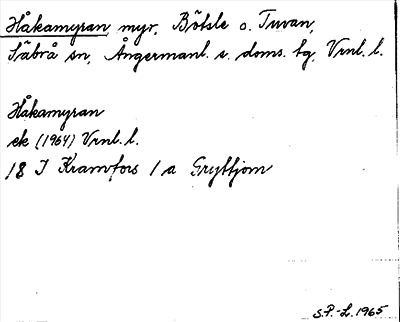 Håkamyran myr, Bötsle o. Tuvan,
Säbrå sn, Ångermanl. s. doms. tg, Vrnl. l.
Håkamyran
ek (1964) Vrnl. l.
18 I Kramfors 1 a Gryttjom
S.P.-L. 1965